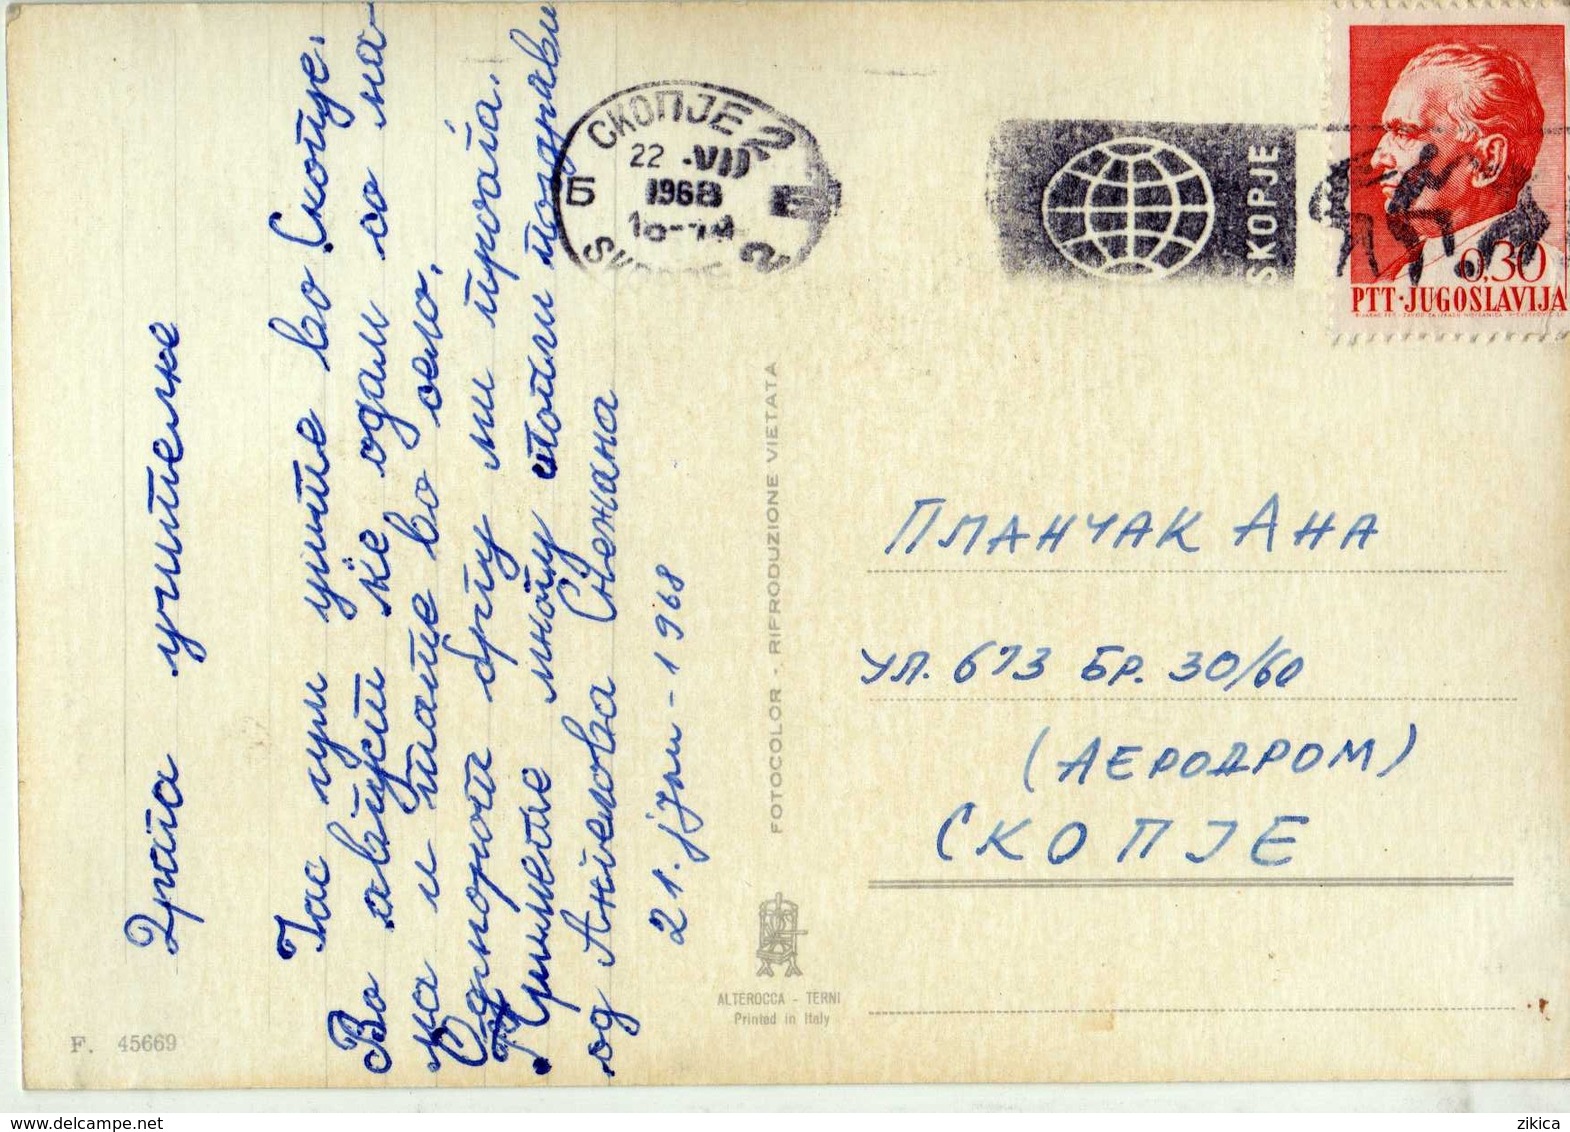 Драга учителке
Јас сум уште во Скопје.
Во август ќе одам со ма-
ма и тате во село.
Одморот брзу ми проаѓа.
Примете многу топли поздрави
од Ангелова Снежана
21. јули - 1968
СКОПЈЕ 2
22 .VII
1968
Б
SKOPJE
0,30
PTT·JUGOSLAVIJA
ПЛАНЧАК АНА
УЛ. 673 БР. 30/60
(АЕРОДРОМ)
СКОПЈЕ
FOTOCOLOR - RIPRODUZIONE VIETATA
ALTEROCCA - TERNI
Printed in Italy
F. 45669
zikica
www.delcampe.net